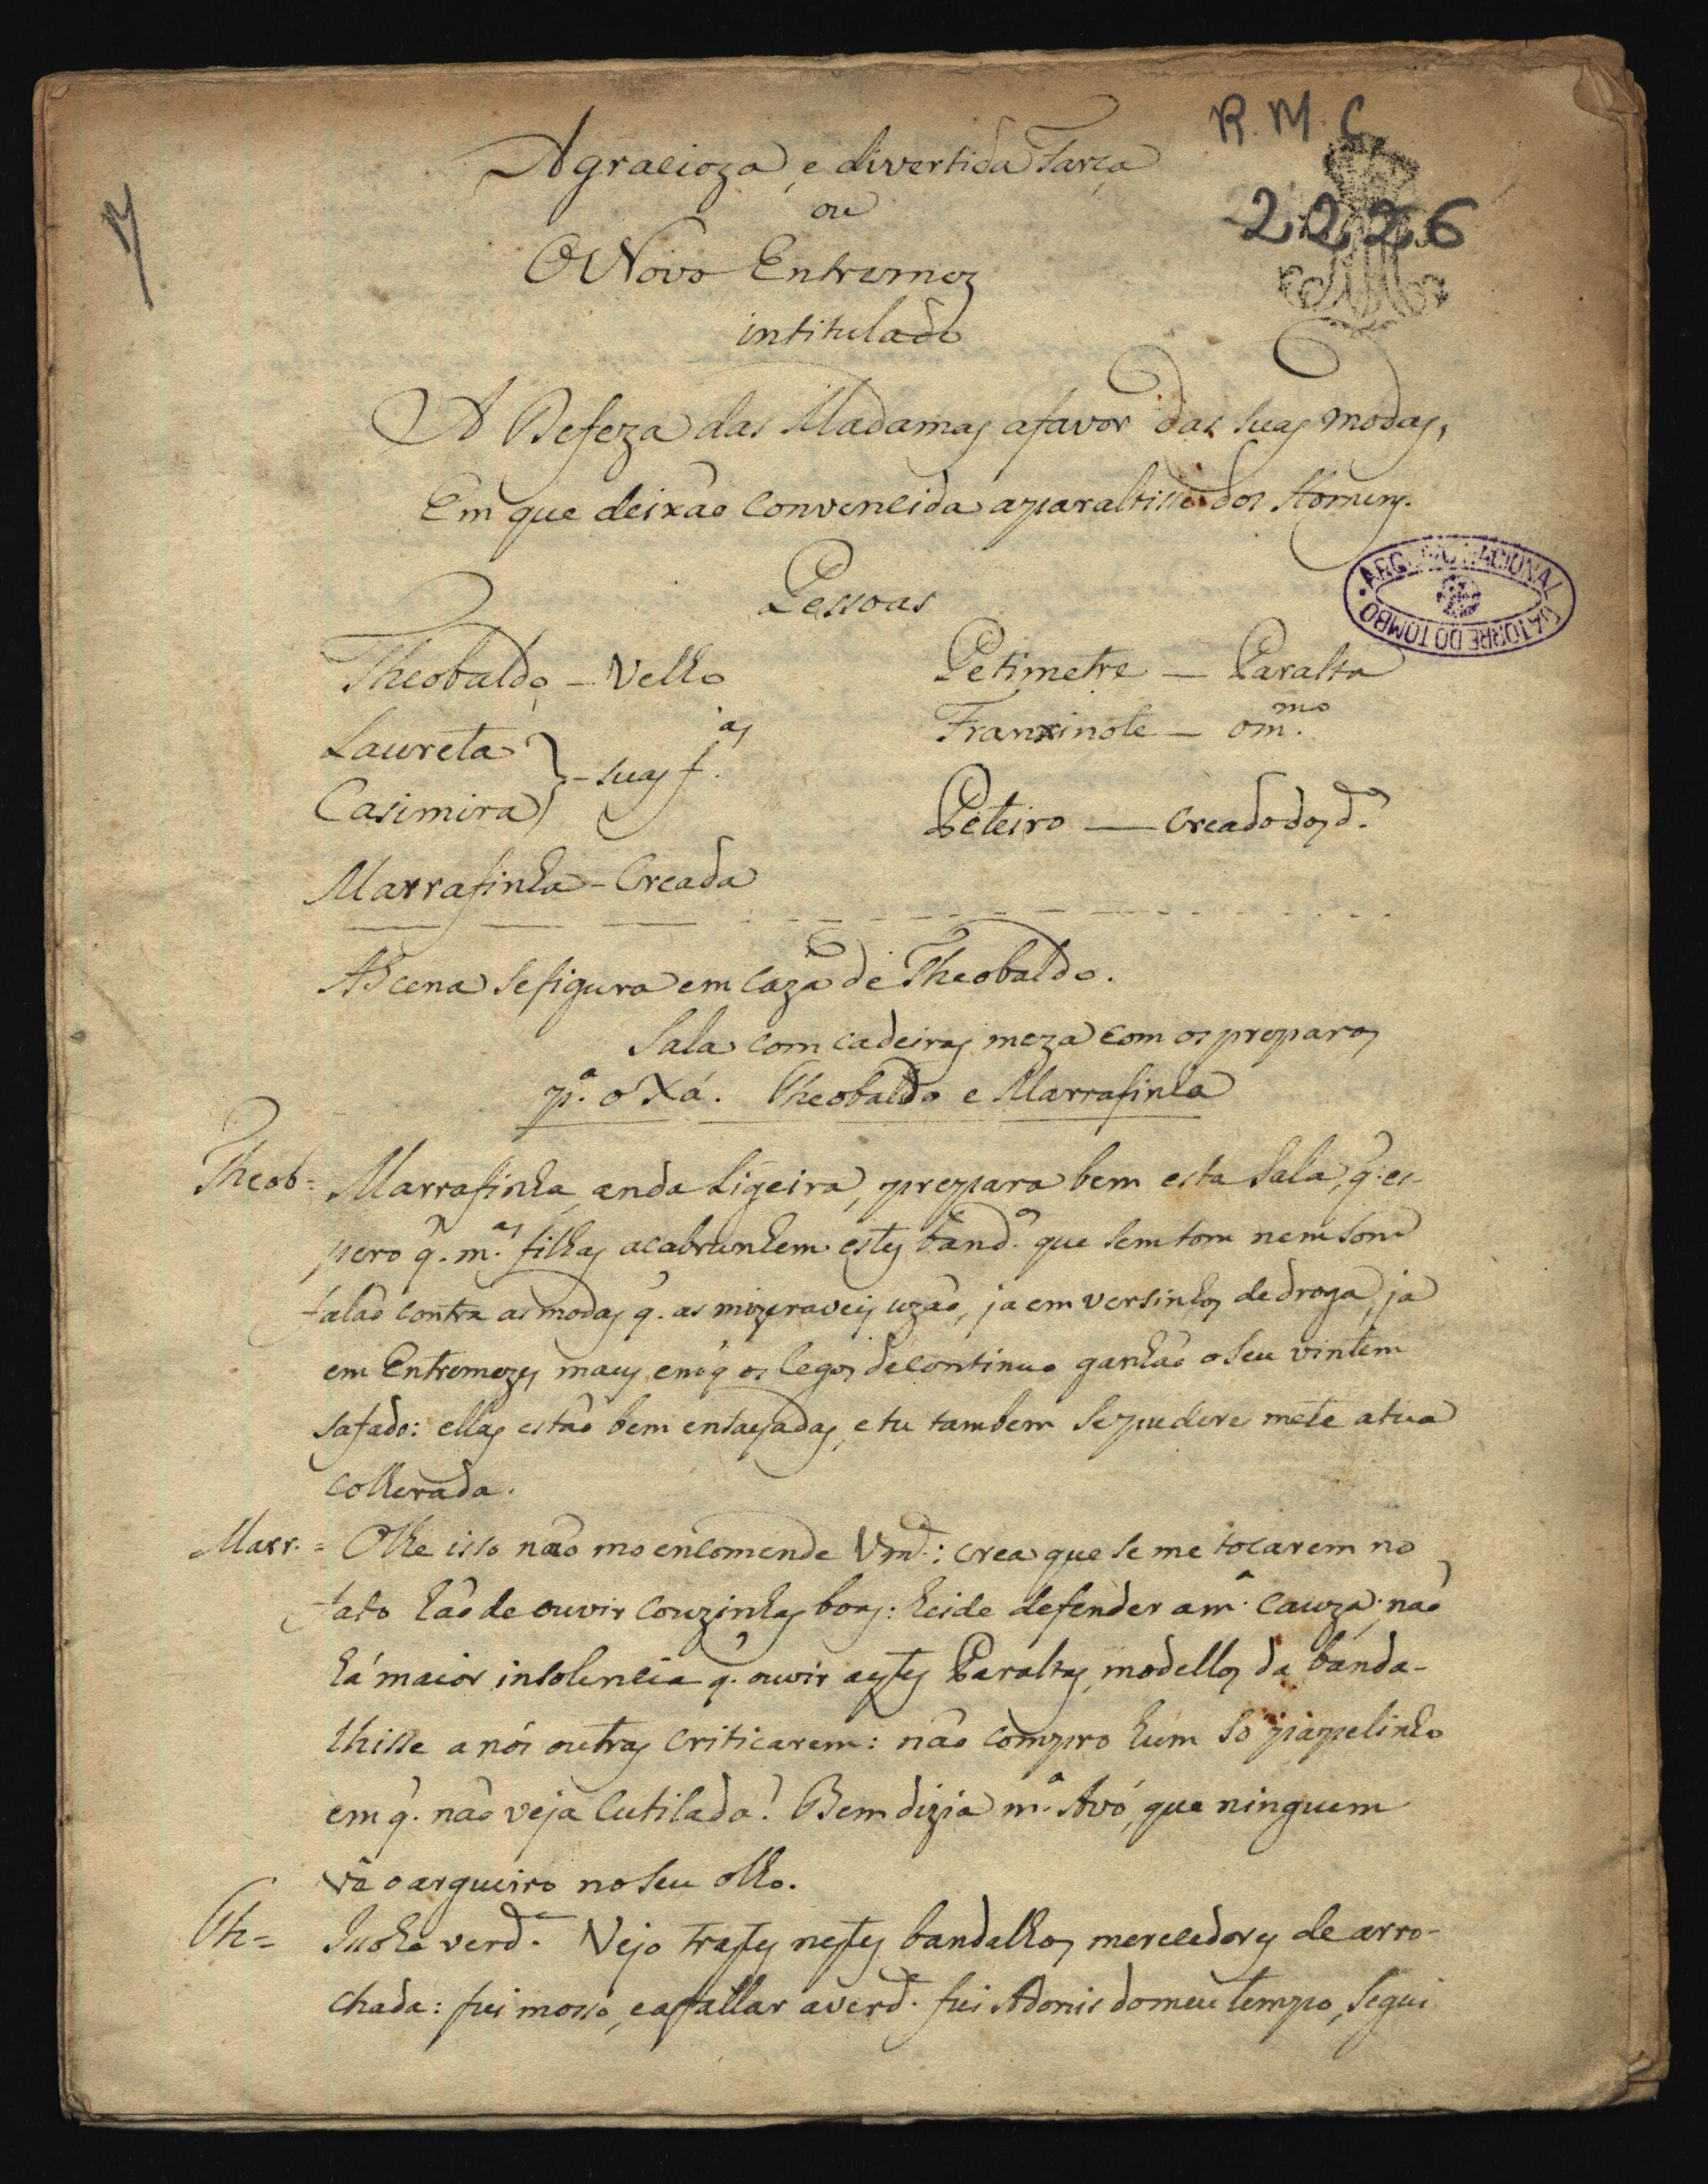 R. M. C.
2226
Agracioza, e divertida Farça
ou
O Novo Entremez
intitulado
A Defeza das Madamas afavor das suas modas,
Em que deixão convencida aparaltisse dos Homens.
Pessoas
ARQUIVO NACIONAL DA TORRE DO TOMBO
Theobaldo – Velho
Laureta
Casimira } – suas f.as
Marrafinha – Creada
Petimetre — Paralta
Franxinote — om.mo
Peteiro — creado dos d.os
AScena sefigura em caza de Theobaldo.
Sala com cadeiras meza com os preparos
p.a o Xá. Theobaldo e Marrafinha
Theob = Marrafinha, anda ligeira, prepara bem esta sala, q. es-
pero q. m.as filhas acabrunhem estes band.os que sem tom nem som
falão contra as modas q. as mizeraveis uzão, ja em versinhos de droga, ja
em Entremezes maus, em q os cegos decontinuo ganhão o seu vintem
safado: ellas estão bem ensayadas, e tu tambem se puderes mete atua
colherada.
Marr. = Olhe isso não mo encomende Vm.ce: crea que se me tocarem no
fato hão de ouvir couzinhas boas: heide defender am.a cauza: não
há maior insolencia q. ouvir aestes Paraltas, modellos da banda-
lhisse a nós outras criticarem: não compro hum só papelinho
em q. não veja cutilada! Bem dizia m.a Avó, que ninguem
vê o argueiro no seu olho.
Th = Isso he verd.e Vejo trastes nestes bandalhos merecedores de arro-
chada: fui mosso, e afallar averd.e fui Adonis domeu tempo, segui